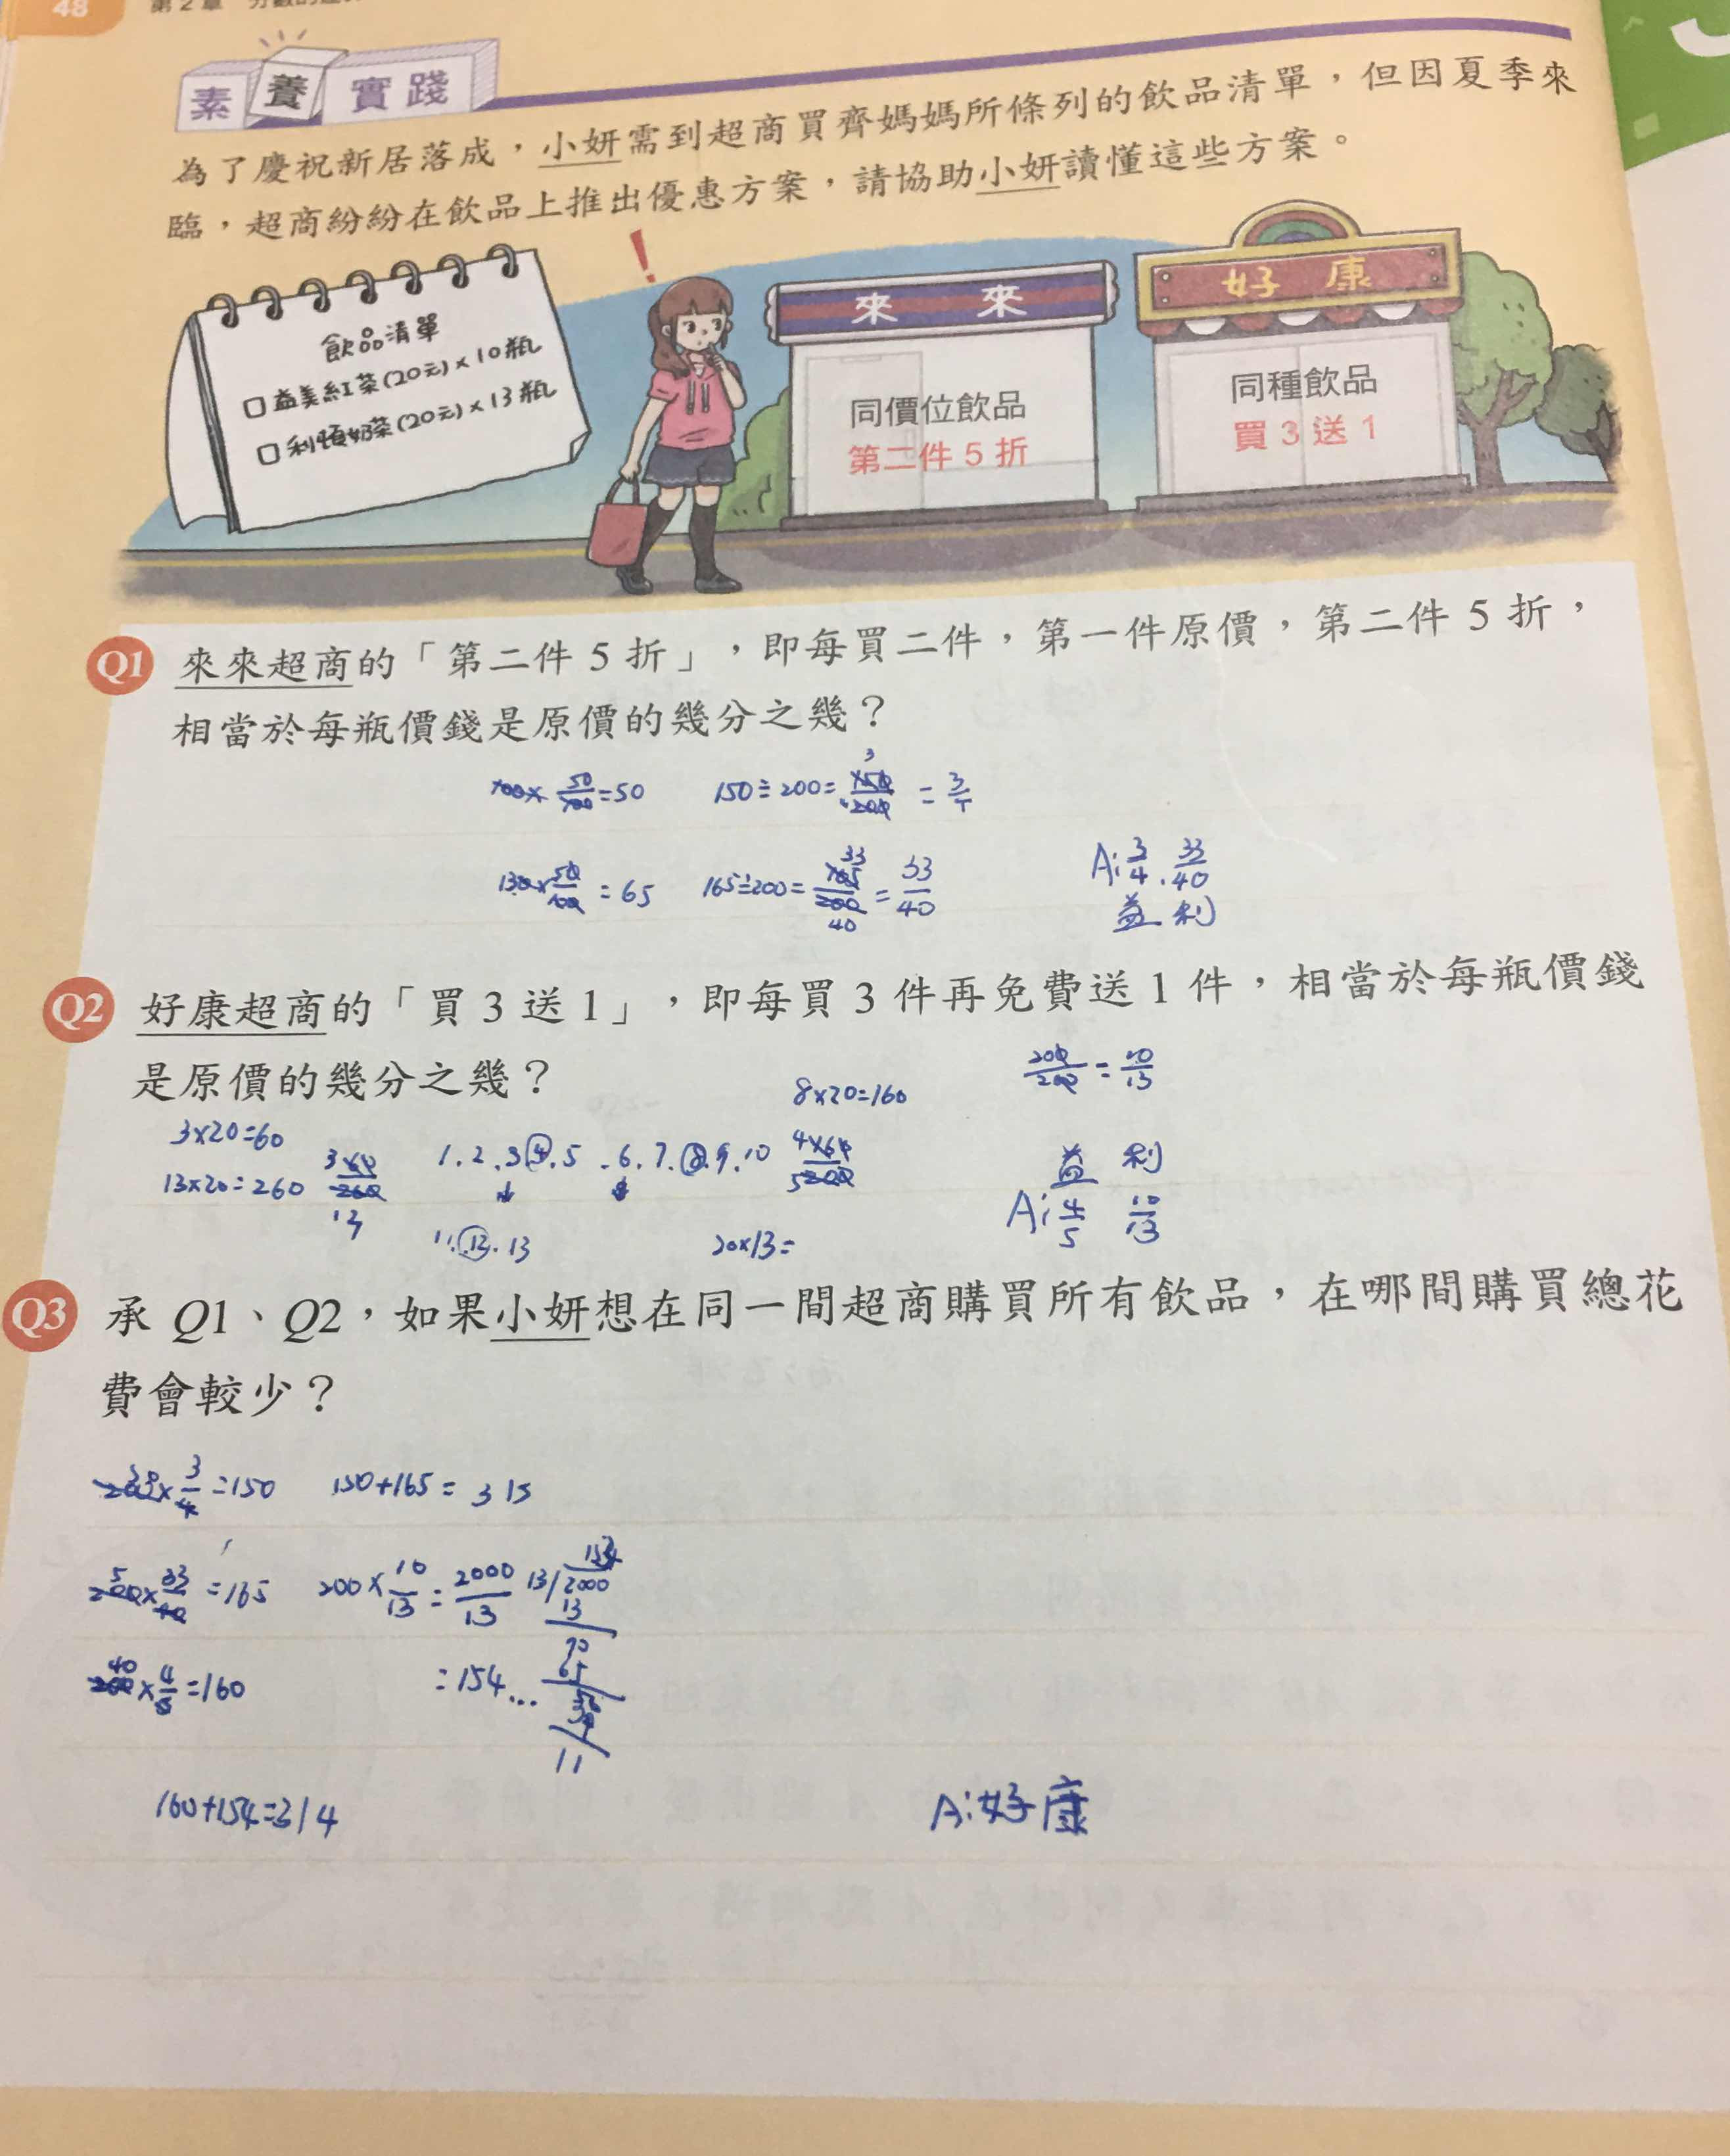 48
第2章
素養實踐
為了慶祝新居落成,小妍需到超商買齊媽媽所條列的飲品清單,但因夏季來
臨,超商紛紛在飲品上推出優惠方案,請協助小妍讀懂這些方案。
飲品清單
□益美紅茶(20元)×10瓶
□利頓奶茶(20元)×13瓶
!
來來
同價位飲品
第二件5折
好康
同種飲品
買3送1
Q1 來來超商的「第二件5折」,即每買二件,第一件原價,第二件5折,
相當於每瓶價錢是原價的幾分之幾?
100×50/100=50 150÷200=150/200=3/4
130×50/100=65 165÷200=165/200=33/40
A:3/4.33/40
益 利
Q2 好康超商的「買3送1」,即每買3件再免費送1件,相當於每瓶價錢
是原價的幾分之幾?
8×20=160
200/260=10/13
3×20=60
13×20=260
1.2.3④.5.6.7.⑧.9.10
11.⑫.13
20×13=
益 利
A:4/5 10/13
Q3 承Q1、Q2,如果小妍想在同一間超商購買所有飲品,在哪間購買總花
費會較少?
200×3/4=150 150+165=315
200×33/40=165 200×10/13=2000/13
200×4/5=160 =154...11
160+154=314
A:好康